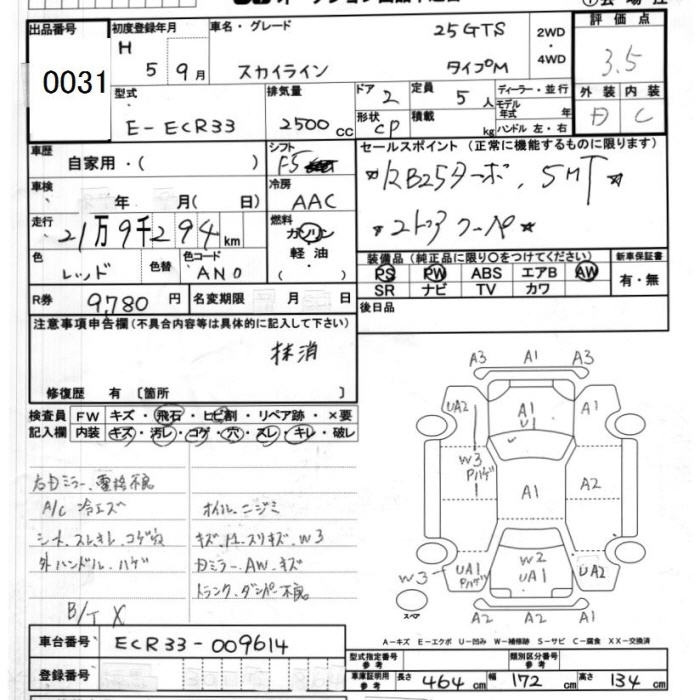 出品番号
0031
初度登録年月
H 5年 9月
車名・グレード
25GTS
スカイライン タイプM
2WD
・
4WD
評価点
3.5
外装 内装
D C
型式
E-ECR33
排気量
2500cc
ドア
2
定員
5人
形状
CP
積載
kg
ディーラー・並行
モデル年式 年
ハンドル 左・右
車歴
自家用・( )
シフト
F5
セールスポイント (正常に機能するものに限ります)
★RB25ターボ、5MT★
★2ドアクーペ★
車検
年 月( 日)
冷房
AAC
走行
21万9千294km
燃料
ガソリン
軽油
・( )
色
レッド
色替
色コード
AN0
装備品 (純正品に限り○をつけてください)
PS PW ABS エアB AW
SR ナビ TV カワ
新車保証書
有・無
R券
9,780円
名変期限 月 日
後日品
注意事項申告欄(不具合内容等は具体的に記入して下さい)
抹消
修復歴 有 [箇所 ]
検査員
記入欄
FW キズ・飛石・ヒビ割・リペア跡・×要
内装 キズ・汚レ・コゲ・穴・スレ・キレ・破レ
右Dミラー、電格不良
A/C 冷エズ
シート、スレキレ、コゲ穴
外ハンドル、ハゲ
B/T X
オイル、ニジミ
キズ、スリキズ、W3
Dミラー、AW、キズ
トランク、ダンパー不良
A3 A1 A3
UA2 A1 U1 A1
W3 Pハゲ A1 A2
UA1 Pハゲ W2 UA1 UA2
W3
スペア
A2 A2 A2
A-キズ E-エクボ U-凹み W-補修跡 S-サビ C-腐食 XX-交換済
車台番号
ECR33-009614
登録番号
型式指定番号
参考
類別区分番号
参考
車庫証明用
参考
長さ 464cm 幅 172cm 高さ 134cm